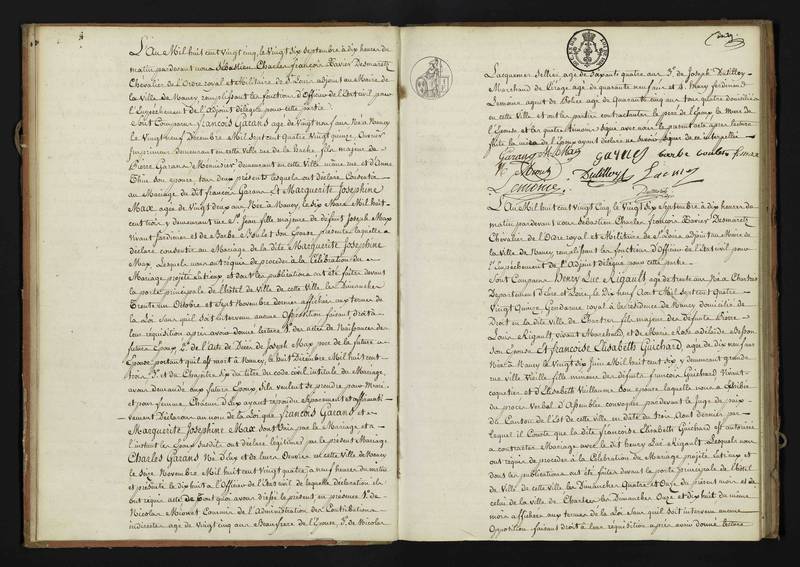 L'An Mil huit cent Vingt cinq, le Vingt Six Septembre à dix heures du
matin pardevant nous Sébastien Charles françois Xavier Desmaretz
Chevalier de l'Ordre royal et Militaire de St Louis adjoint au Maire de
la Ville de Nancy remplissant les fonctions d'Officier de l'Etat civil pour
l'Empêchement de l'Adjoint délégué pour cette partie.
Sont Comparus françois Garans agé de Vingt neuf ans Né à Nancy
le Vingt neuf Décembre Mil Sept cent Quatre Vingt quinze, Ouvrier
Imprimeur demeurant en cette Ville rue de la fils majeur de
Pierre Garans Menuisier demeurant en cette Ville même rue et d'Anne
son épouse, tous deux présents lesquels ont déclaré Consentir
au Mariage du dit françois Garans Et Marguerite Josephine
Max agée de Vingt deux ans Née à Nancy, le dix Mars Mil huit
cent trois y demeurant rue St Jean fille majeure de défunt Joseph Max
Vivant Jardinier et de Barbe Coulet Son Epouse présente laquelle a
déclaré consentir au Mariage de la dite Marguerite Josephine
Max. Lesquels nous ont requis de procéder à la Célébration du
Mariage projeté entr'eux et dont les publications ont été faites devant
la porte principale de l'hôtel de Ville de cette Ville les Dimanches
Trente un Octobre et Sept Novembre dernier affichées aux termes de
la Loi Sans quil soit intervenu aucune Opposition faisant droit à
leur réquisition après avoir donné lecture 1° des actes de Naissances des
futurs Epoux 2° de l'Acte de Décès de Joseph Max père de la future
Epouse portant quil est mort à Nancy, le huit Décembre Mil huit cent
trois 3° et du Chapitre Six du titre du code civil intitulé du Mariage,
avons demandé aux futurs Epoux S'ils veulent se prendre pour Mari
et pour femme, Chacun d'eux ayant répondu Séparément et affirmati
vement Déclarons au nom de la Loi que françois Garans et
Marguerite Josephine Max Sont Unis par le Mariage et à
l'instant les Epoux Susdits ont déclaré légitimer par le présent Mariage
Charles Garans Né d'eux et de leurs Oeuvres en cette Ville de Nancy
le Seize Novembre Mil huit cent Vingt quatre à neuf heures du matin
et présenté le dix huit à l'Officier de l'Etat civil de laquelle déclaration ils
ont requis acte de Tout quoi avons dressé le présent en présence Srs de
Nicolas Commis de l'Administration des Contributions
indirectes agé de Vingt cinq ans Beaufrère de l'Epouse, Sr de Nicolas
Lacquemer Sellier, agé de Sr de Joseph Dutilloy
Marchand de agé de quarante neuf ans et Sr Mary ferdinand
Lemoine agent de Police agé de Quarante cinq ans tous quatre domiciliés
en cette Ville et ont les parties contractantes le père de l'Epoux la Mère de
l'Epouse et les quatre témoins Signé avec nous le présent acte après lecture
faite la mère de l'Epoux ayant déclaré ne Savoir Signer de ce interpellée
Garans M. J. Max garans barbe coulet
Lemoine. Dutilloy
L'An Mil huit cent Vingt Cinq, le Vingt Six Septembre à dix heures du
matin pardevant nous Sébastien Charles françois Xavier Desmaretz
Chevalier de l'Ordre royal et Militaire de St Louis adjoint au Maire de
la Ville de Nancy remplissant les fonctions d'Officier de l'Etat civil pour
l'Empêchement de l'Adjoint délégué pour cette partie
Sont Comparus Henry Luc Rigault agé de trente ans Né à Chartres
Département d'Eure et Loire, le Dix huit Août Mil Sept cent Quatre
Vingt Quinze, Gendarme royal à la résidence de Nancy domicilié de
Droit en la dite Ville de Chartres fils majeur des Défunts Pierre
Louis Rigault, vivant Marchand, et de Marie Rose adélaide
Son Epouse Et francoise Elisabeth Guichard, agée de dix neuf ans
Née à Nancy le Vingt dix Juin Mil huit cent Six y demeurant grande
rue Ville Vieille fille mineure des défunts françois Guichard Vivant
coquetier et d'Elisabeth Vuillaume Son épouse laquelle nous a Exhibé
du procès Verbal d'Assemblée convoquée pardevant le Juge de paix
du Canton de l'Est de cette ville en date du Trois Août dernier par
lequel il Conste que la dite francoise Elisabeth Guichard est autorisée
à contracter Mariage avec le dit henry Luc Rigault. Lesquels nous
ont requis de procéder à la Célébration du Mariage projeté entr'eux et
dont les publications ont été faites devant la porte principale de l'hôtel
de Ville de cette ville les Dimanches Quatre et Onze du présent mois et de
celui de la ville de Chartres les Dimanches Onze et dix huit du même
mois affichées aux termes de la Loi Sans quil soit intervenu aucune
Opposition faisant droit à leur réquisition après avoir donné lecture